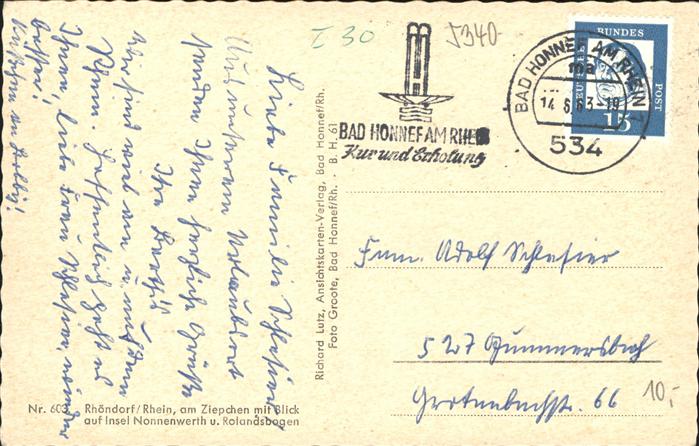 I 30
5340
BAD HONNEF AM RHEIN
Kur und Erholung
BAD HONNEF AM RHEIN 1
ma
14.6.63-18
534
DEUTSCHE BUNDESPOST
15
Liebe Familie Schlesier!
Aus unserem Urlaubsort
senden Ihnen herzliche Grüße
Ihre
Wir sind viel am u. auf dem
Rhein. Hoffentlich geht es
Ihnen, liebe Frau Schlesier, wieder
besser!
Richard Lutz, Ansichtskarten-Verlag, Bad Honnef/Rh.
Foto Groote, Bad Honnef/Rh. - B. H. 61
Fam. Adolf Schlesier
527 Gummersbach
Grotenbachstr. 66
10,-
Nr. 603 Rhöndorf/Rhein, am Ziepchen mit Blick
auf Insel Nonnenwerth u. Rolandsbogen